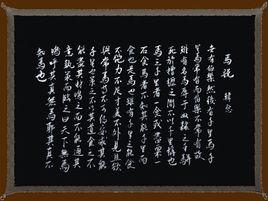 馬說 韓愈
世有伯樂然後有千里馬千
里馬常有而伯樂不常有故
雖有名馬辱於奴隸人之手駢
死於槽櫪之間不以千里稱也
馬之千里者一食或盡粟一
石食馬者不知其能千里而
食也是馬也雖有千里之能食
不飽力不足才美不外見且欲
與常馬等不可得安求其能
千里也策之不以其道食之不
能盡其材鳴之而不能通其
意執策而臨之曰天下無馬
嗚呼其真無馬耶其真不
知馬也